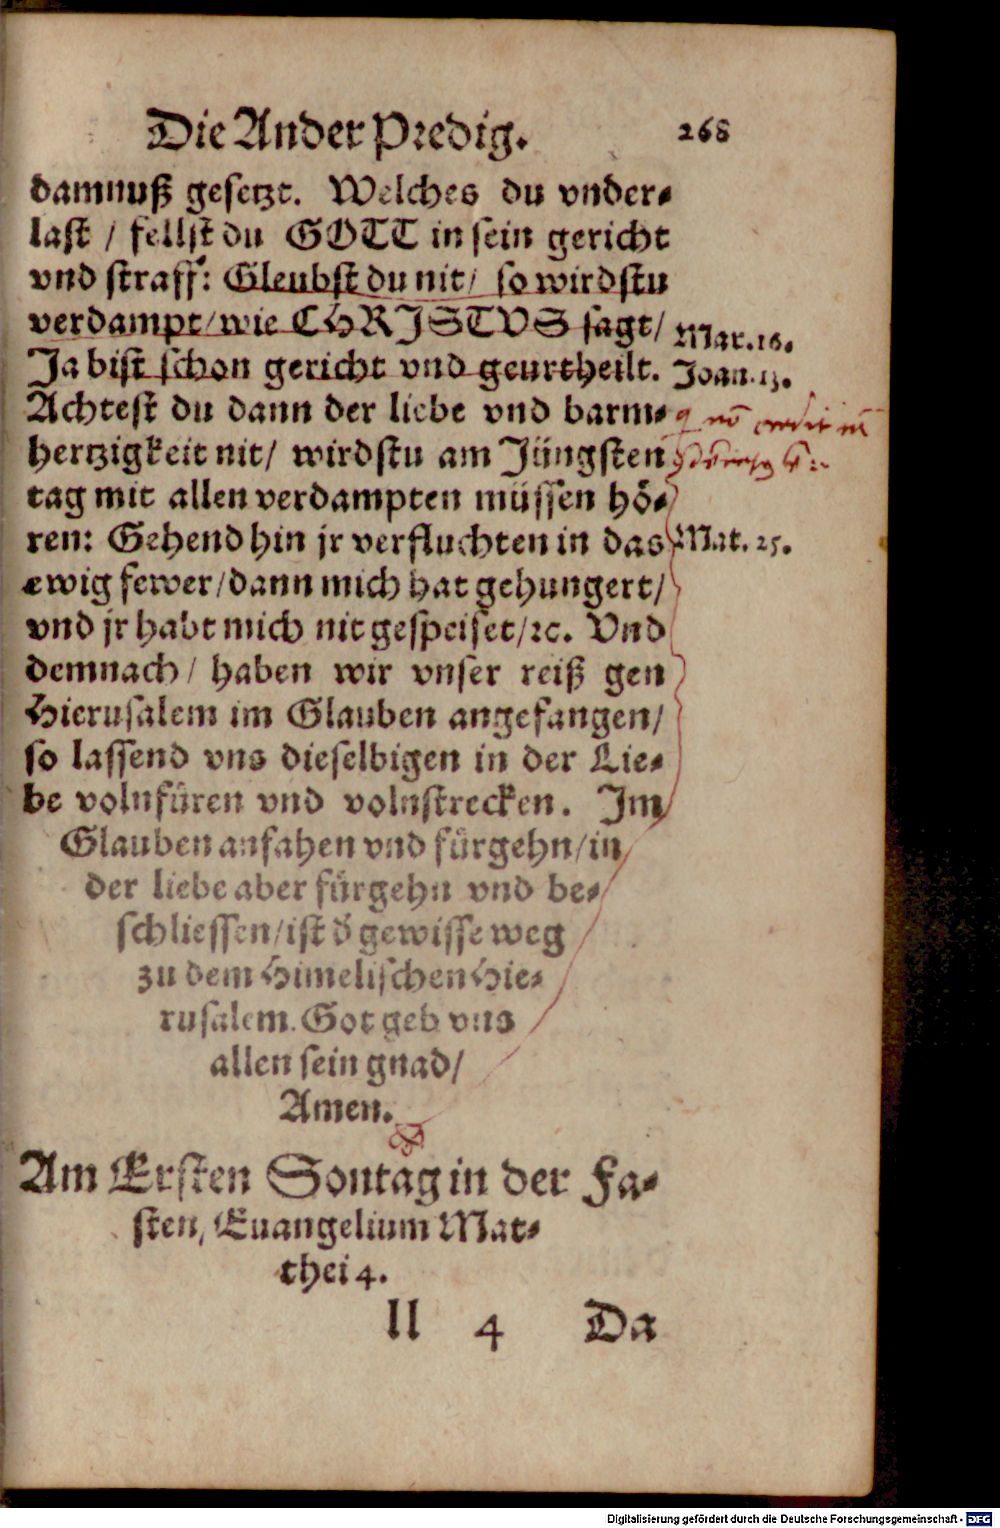 Die Ander Predig. 268
damnuß gesetzt. Welches du vnder⸗
last / fellst du GOTT in sein gericht
vnd straff: Gleubst du nit / so wirdstu
verdampt / wie CHRJSTVS sagt / Mar. 16.
Ja bist schon gericht vnd geurtheilt. Joan. 13.
Achtest du dann der liebe vnd barm⸗
hertzigkeit nit / wirdstu am Jüngsten
tag mit allen verdampten müssen hö⸗
ren: Gehend hin jr verfluchten in das Mat. 25.
ewig fewer / dann mich hat gehungert /
vnd jr habt mich nit gespeiset / ꝛc. Vnd
demnach / haben wir vnser reiß gen
Hierusalem im Glauben angefangen /
so lassend vns dieselbigen in der Lie⸗
be volnfüren vnd volnstrecken. Jm
Glauben anfahen vnd fürgehn / in
der liebe aber fürgehn vnd be⸗
schliessen / ist d̕ gewisse weg
zu dem Himelischen Hie⸗
rusalem. Got geb vns
allen sein gnad /
Amen.
Am Ersten Sontag in der Fa⸗
sten, Euangelium Mat⸗
thei 4.
ll 4 Da
Digitalisierung gefördert durch die Deutsche Forschungsgemeinschaft - DFG